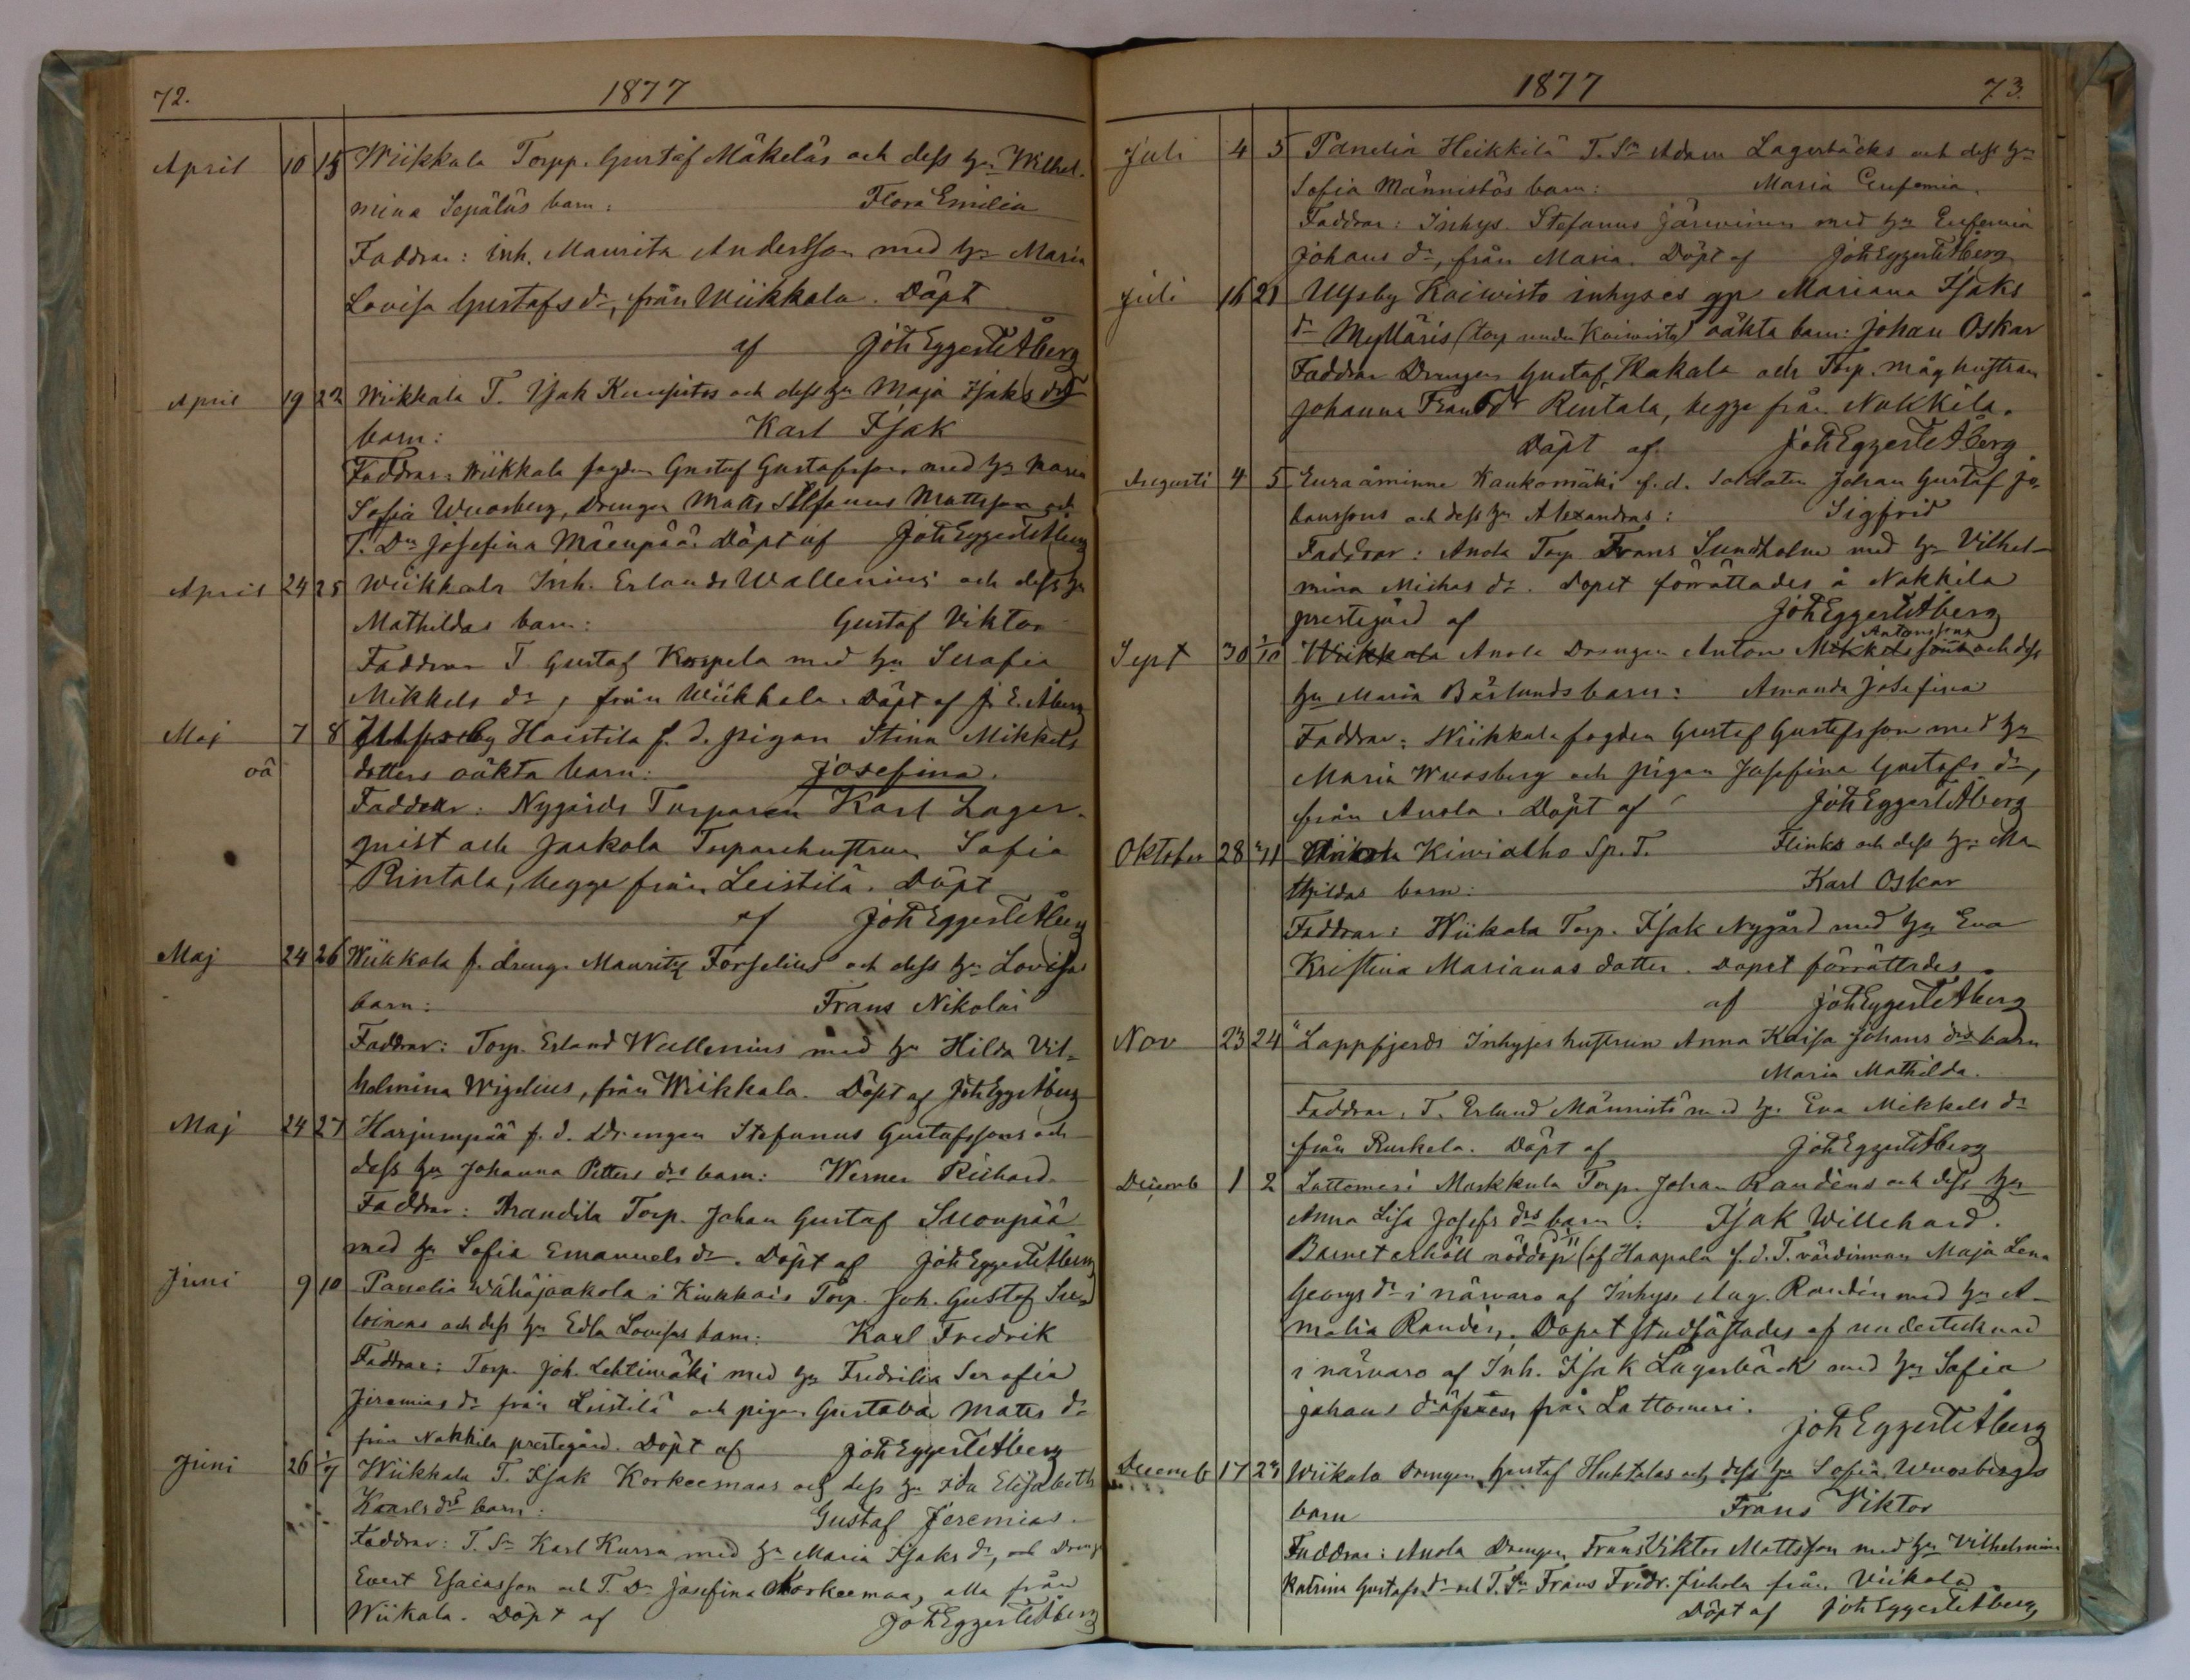 72.
1877
April 10 15 Wiikkala Torpp. Gustaf Mäkeläs och dess hu Wilhel-
mina Sepäläs barn: Flora Emilia
Faddrar: inh. Maurits Andersson med hu Maria
Lovisa Gustafs dr, från Wiikkala. Döpt
af Joh Eggert Åberg
April 19 22 Wiikkala T. Isak och dess hu Maja Isaks drs
barn: Karl Isak
Faddrar: Wiikkala fogden Gustaf Gustafsson med hu Maria
Sofia Wuosberg, Drengen Matts Stefanus Mattsson och
T. Dn Josefina Mäenpää. Döpt af Joh Eggert Åberg
April 24 25 Wiikkala Inh. Erlands Wallenius och dess hu
Mathildas barn: Gustaf Viktor
Faddrar T. Gustaf Korpela med hu Serafia
Mikkels dr, från Wiikkala. Döpt af J. E. Åberg
Maj 7 8 Ulfsby Haistila f. d. pigan Stina Mikkels
oä dotters oäkta barn: Josefina.
Faddrar: Nygårds Torparen Karl Lager-
qvist och Jaakola Torparehustrun Sofia
Rintala, begge från Leistilä. Döpt
af Joh Eggert Åberg
Maj 24 26 Wiikkala f. dreng. Mauritz Forselius och dess hu Lovisas
barn: Frans Nikolai
Faddrar: Torp. Erland Wallenius med hu Hilda Vil-
helmina Wigelius, från Wiikkala. Döpt af Joh Egg Åberg
Maj 24 27 Harjunpää f. d. Drengen Stefanus Gustafssons och
dess hu Johanna Petters drs barn: Werner Richard.
Faddrar: Torp. Johan Gustaf Suonpää
med hu Sofia Emanuels dr. Döpt af Joh Eggert Åberg
Juni 9 10 Panelia Wähäjaakola i Kiukkais Torp. Joh. Gustaf Su-
loinens och dess hu Edla Lovisas barn: Karl Fredrik
Faddrar: Torp. Joh. Lehtimäki med hu Fredrika Serafia
Jeremias dr från Leistilä och pigan Gustava Matts dr
från Nakkila prestegård. Döpt af Joh Eggert Åberg
Juni 26 1/7 Wiikkala T. Isak Korkeemaas och dess hu Ida Elisabeth
Kaarls drs barn: Gustaf Jeremias.
Faddrar: T. Sn Karl Kurra med hu Maria Isaks dr, och Dreng
Evert Esaiasson och T. Dn Josefina Korkeemaa, alla från
Wiikala. Döpt af Joh Eggert Åberg
1877
73.
Juli 4 5 Panelia Heikkilä T. Sn Adam Lagerbäcks och dess hu
Sofia Männistös barn: Maria Eufemia.
Faddrar: Inhys. Stefanus Järvinen med hu Eufemia
Johans dr, från Maria. Döpt af Joh Eggert Åberg
Juli 16 21 Ulfsby Koivisto inhyses qp Mariana Isaks
dr Mylläris (torp under Koivisto) oäkta barn: Johan Oskar
Faddrar Drengen Gustaf Hakala och Torp. måg hustrun
Johanna Frans dr Rentala, begge från Nakkila.
Döpt af Joh Eggert Åberg
Augusti 4 5 Euraåminne Kaukomäki f. d. Soldaten Johan Gustaf Jo-
hanssons och dess hu Alexandras: Sigfrid
Faddrar: Anola Torp Frans Sundholm med hu Vilhel-
mina Mickas dr. Dopet förrättades å Nakkila
prestegård af Joh Eggert Åberg
Antonssons
Sept 30 1/10 Wiikkala Anola Drengen Anton Mikkelssons och dess
hu Maria Bärlunds barn: Amanda Josefina
Faddrar: Wiikkala fogden Gustaf Gustafsson med hu
Maria Wuosberg och pigan Josefina Gustafs dr,
från Anola. Döpt af Joh Eggert Åberg
Oktober 28 Kivialho Sp. T. Flinks och dess hu Ma-
thildas barn: Karl Oskar
Faddrar: Wiikala Torp. Isak Nygård med hu Eva
Kristina Marianas dotter. Dopet förrättades
af Joh Eggert Åberg
Nov 23 24 Lappfjerds Inhyses hustrun Anna Kaisa Johans drs barn
Maria Mathilda.
Faddrar. T. Erland Männistö med hu Eva Mikkels dr
från Ruskela. Döpt af Joh Eggert Åberg
Decemb 1 2 Lattomeri Markkula Torp. Johan Randéns och dess hu
Anna Lisa Josefs drs barn: Isak Willehard.
Barnet erhöll nöddop (af Haapala f. d. T. värdinnan Maja Lena
Georgs dr i närvaro af Inhyse Aug. Randén med hu A-
malia Randén. Dopet stadfästades af undertecknad
i närvaro af Inh. Isak Lagerbäck med hu Sofia
Johans dr från Lattomeri.
Joh Eggert Åberg
Decemb 17 23 Wiikala drengen Gustaf Huhtalas och dess hu Sofia Wuosbergs
barn Frans Viktor
Faddrar: Anola Drengen Frans Viktor Mattsson med hu Vilhelmina
Katrina Gustafs dr och T. Sn Frans Fredr. Juhola från Viikala
Döpt af Joh Eggert Åberg